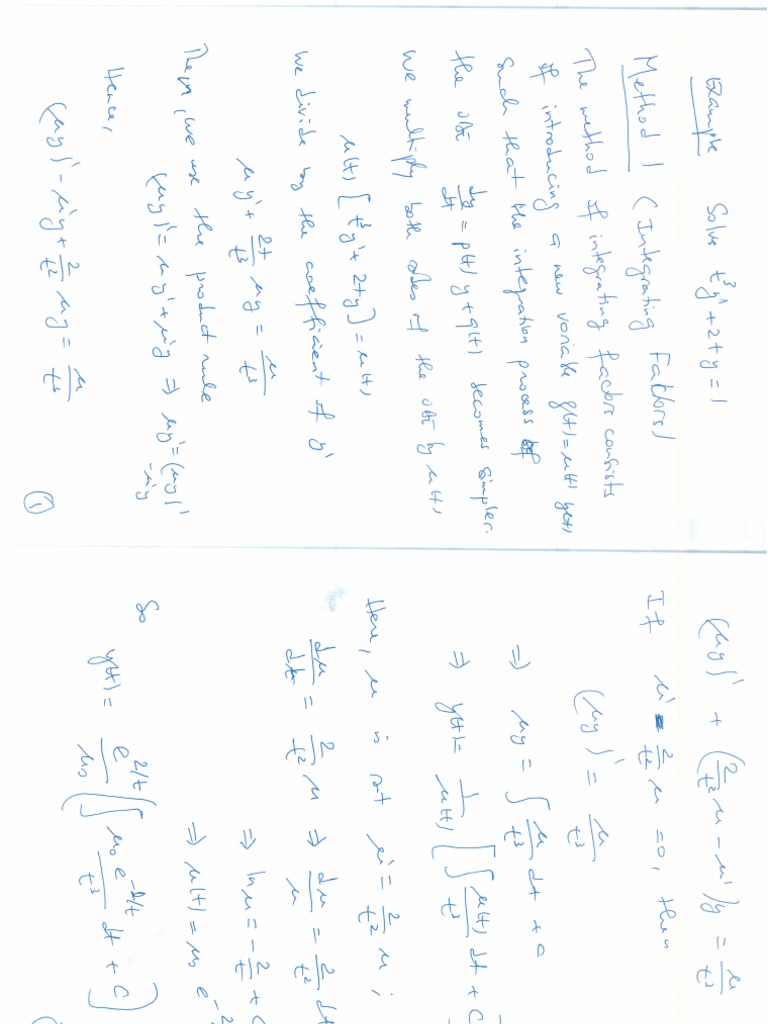 Example Solve t³y' + 2ty = 1
Method 1 (Integrating Factors)
The method of integrating factors consists
of introducing a new variable g(t) = μ(t) y(t)
such that the integration process of
the ODE dy/dt = p(t) y + q(t) becomes simpler.
We multiply both sides of the ODE by μ(t)
μ(t) [t³y' + 2ty] = μ(t)
We divide by the coefficient of y'
μy' + 2t/t³ μy = μ/t³
Then, we use the product rule
(μy)' = μy' + μ'y ⇒ μy' = (μy)'
- μ'y
Hence,
(μy)' - μ'y + 2/t² μy = μ/t³
①
(μy)' + (2/t² μ - μ')y = μ/t³
If μ' - 2/t² μ = 0, then
(μy)' = μ/t³
⇒ μy = ∫ μ/t³ dt + C
⇒ y(t) = 1/μ(t) [∫ μ(t)/t³ dt + C
Here, μ is not μ' = 2/t² μ;
dμ/dt = 2/t² μ ⇒ dμ/μ = 2/t² dt
⇒ ln μ = -2/t + C
⇒ μ(t) = μ₀ e^-2/
So y(t) = e^2/t/μ₀ (∫ μ₀ e^-2/t/t³ dt + C)